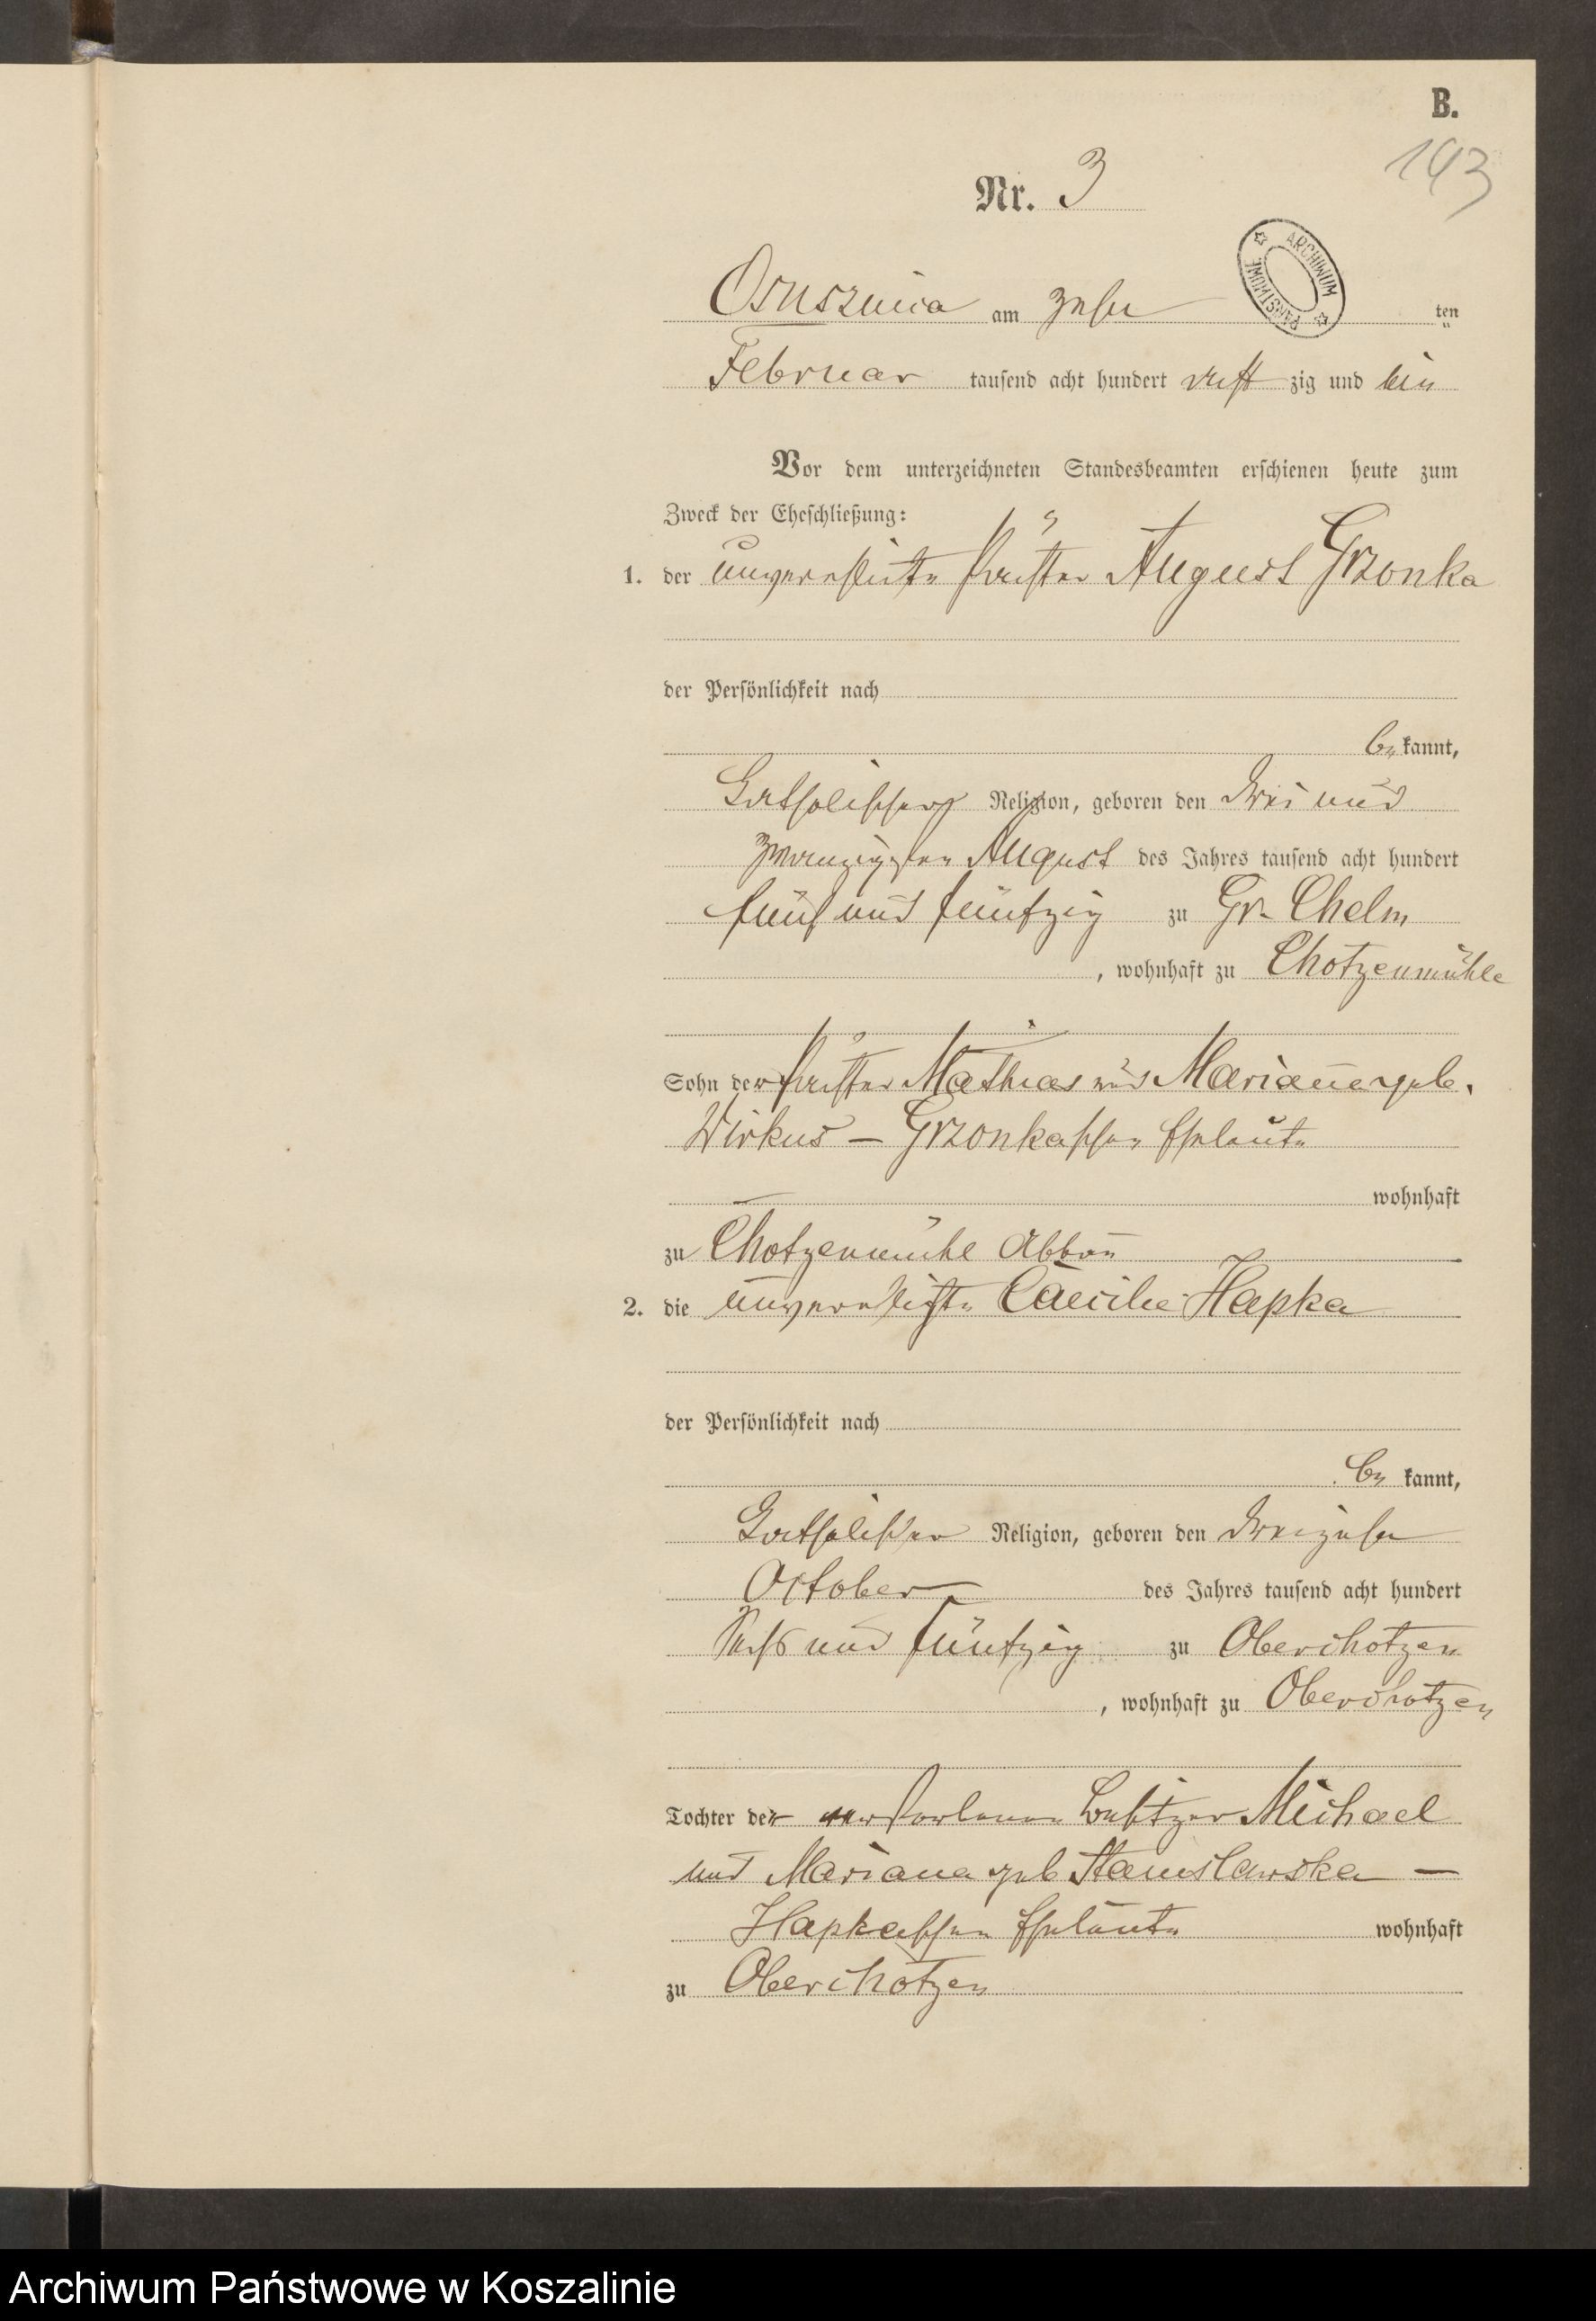 B.
143
Nr. 3
ARCHIWUM PAŃSTWOWE
Osusznica am zehn ten
Februar tausend acht hundert acht zig und ein
Vor dem unterzeichneten Standesbeamten erschienen heute zum
Zweck der Eheschließung:
1. der unverehlichte August Grzonka
der Persönlichkeit nach
be kannt,
katholischer Religion, geboren den drei und
zwanzigsten August des Jahres tausend acht hundert
fünf und fünfzig zu Gr. Chelm
, wohnhaft zu Chotzenmühle
Sohn der Mathias und Marianna geb.
Wirkus – Grzonkaschen Eheleute
wohnhaft
zu Chotzenmühl Abbau
2. die unverehlichte Caecilie Hapka
der Persönlichkeit nach
be kannt,
katholischer Religion, geboren den dreizehn
October des Jahres tausend acht hundert
sechs und fünfzig zu Oberchotzen
, wohnhaft zu Oberchotzen
Tochter der verstorbenen Besitzer Michael
und Mariana geb Stanislawska –
Hapkaschen Eheleute wohnhaft
zu Oberchotzen
Archiwum Państwowe w Koszalinie